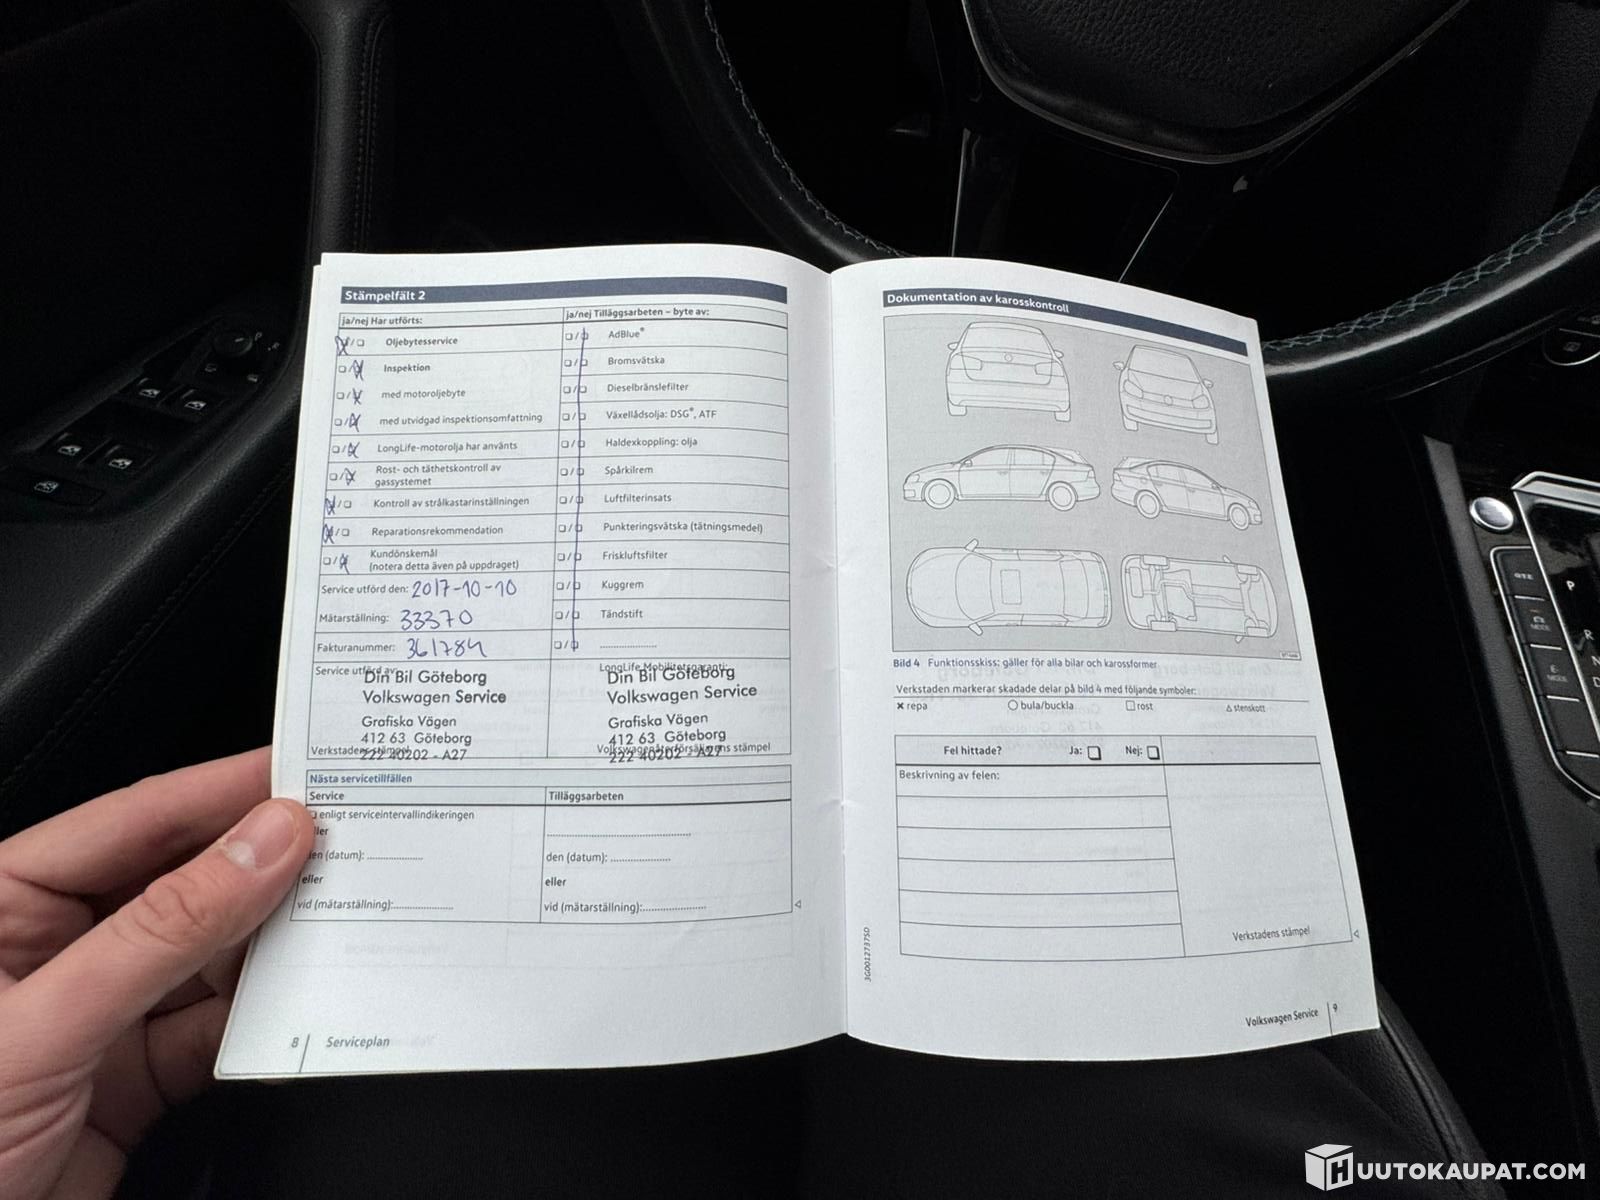 Stämpelfält 2
ja/nej Har utförts:
ja/nej Tilläggsarbeten – byte av:
Oljebytesservice
Inspektion
med motoroljebyte
med utvidgad inspektionsomfattning
LongLife-motorolja har använts
Rost- och täthetskontroll av
gassystemet
Kontroll av strålkastarinställningen
Reparationsrekommendation
Kundönskemål
(notera detta även på uppdraget)
AdBlue®
Bromsvätska
Dieselbränslefilter
Växellådsolja: DSG®, ATF
Haldexkoppling: olja
Spårkilrem
Luftfilterinsats
Punkteringsvätska (tätningsmedel)
Friskluftsfilter
Kuggrem
Tändstift
Service utförd den: 2017-10-10
Mätarställning: 33370
Fakturanummer: 361784
Service utförd av:
Din Bil Göteborg
Volkswagen Service
Grafiska Vägen
412 63 Göteborg
222 40202 - A27
Verkstadens stämpel
LongLife Mobilitetsgaranti:
Din Bil Göteborg
Volkswagen Service
Grafiska Vägen
412 63 Göteborg
222 40202 - A27
Volkswagenåterförsäljarens stämpel
Nästa servicetillfällen
Service
Tilläggsarbeten
enligt serviceintervallindikeringen
den (datum): ....................
eller
vid (mätarställning):....................
den (datum): ....................
eller
vid (mätarställning):....................
8 Serviceplan
Dokumentation av karosskontroll
Bild 4 Funktionsskiss: gäller för alla bilar och karossformer
Verkstaden markerar skadade delar på bild 4 med följande symboler:
× repa
bula/buckla
rost
stenskott
Fel hittade? Ja: Nej:
Beskrivning av felen:
Verkstadens stämpel
3G0012737SD
Volkswagen Service 9
GTE
MODE
E-
MODE
P
R
N
D
HUUTOKAUPAT.COM